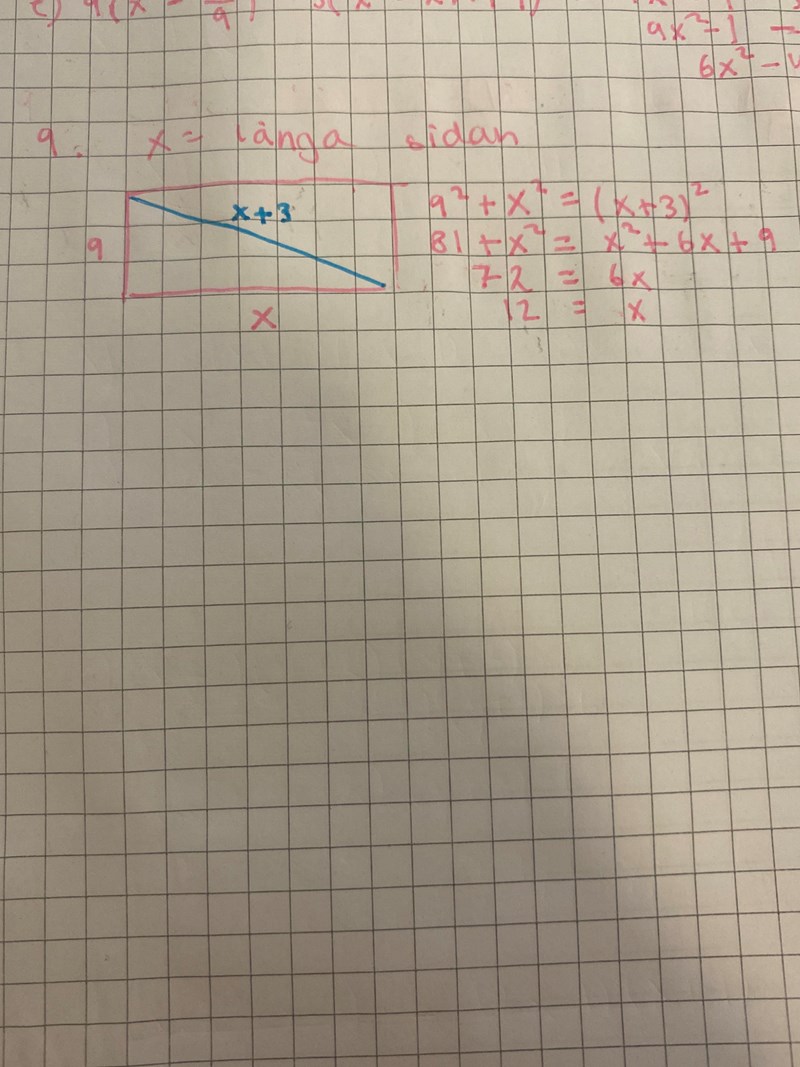 9x²-1
6x²-
9. x = långa sidan
x+3
9
x
9² + x² = (x+3)²
81 + x² = x² + 6x + 9
72 = 6x
12 = x